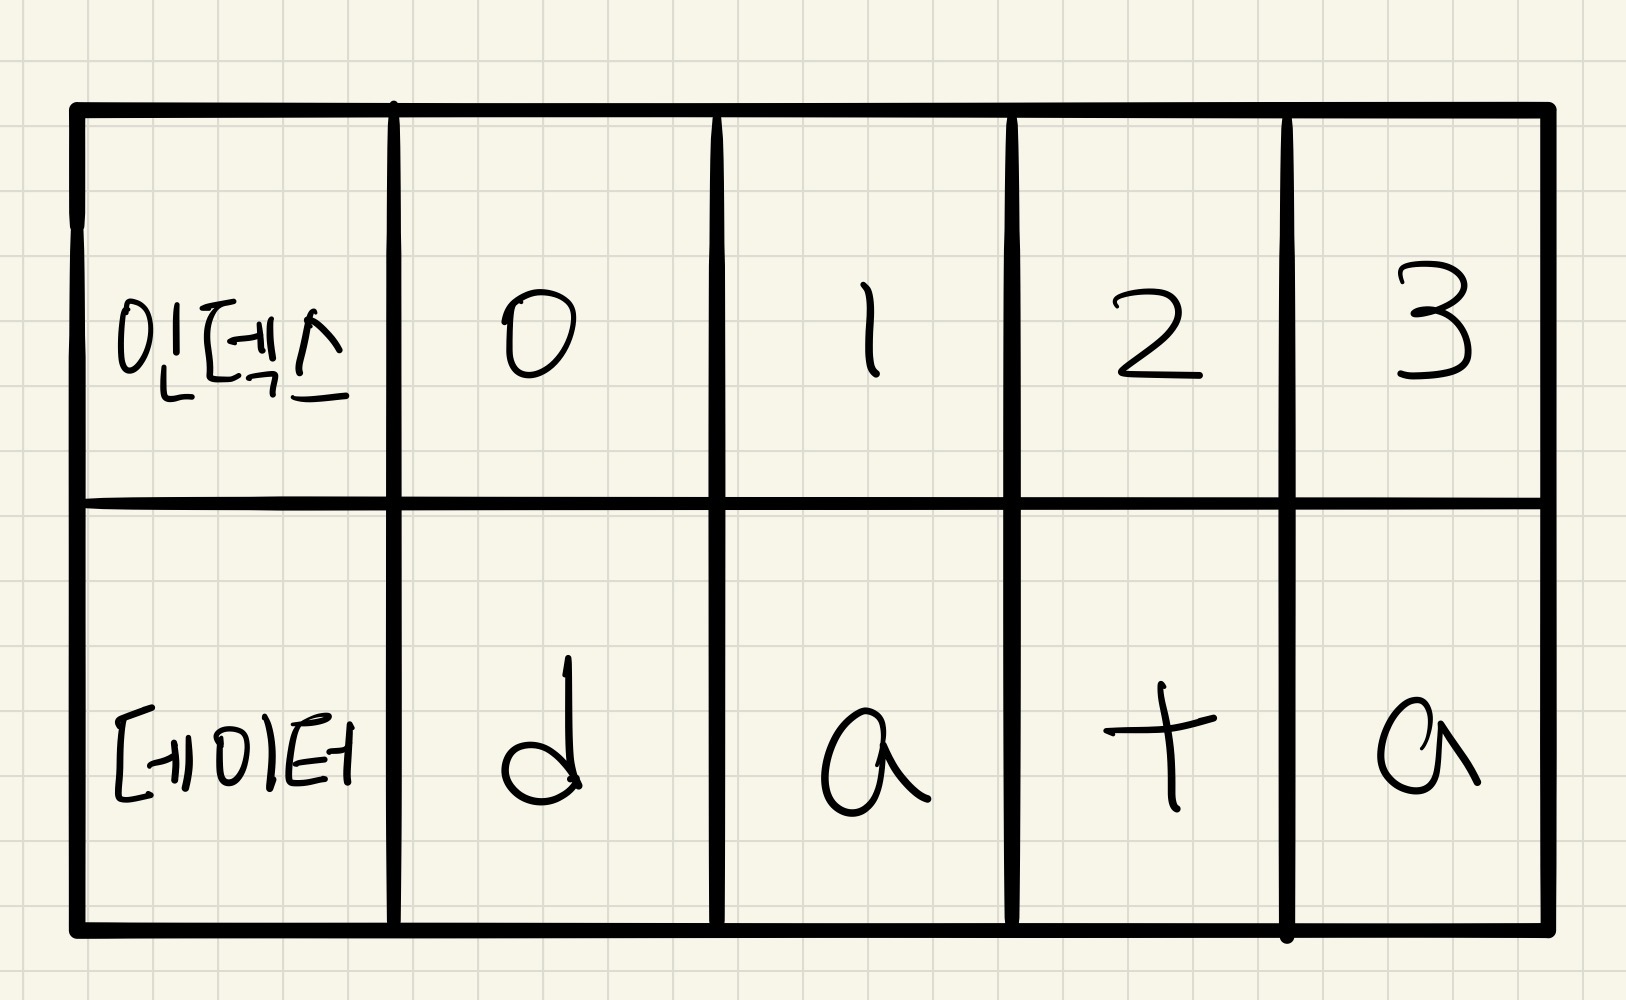 인덱스 0 1 2 3
데이터 d a t a